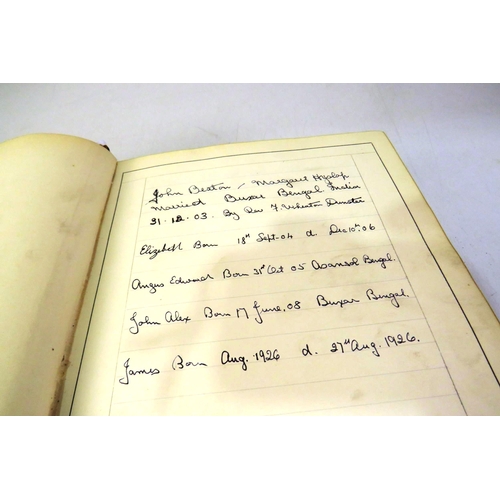 John Beaton / Margaret Hyslop
Married Buxar Bengal India
31.12.03. By Rev F.
Elizabeth Born 18th Sept.04 d. Dec 10th.06
Angus Edward Born 31st Oct 05 Asansol Bengal.
John Alex Born 17 June, 08 Buxar Bengal.
James Born Aug. 1926 d. 27th Aug. 1926.